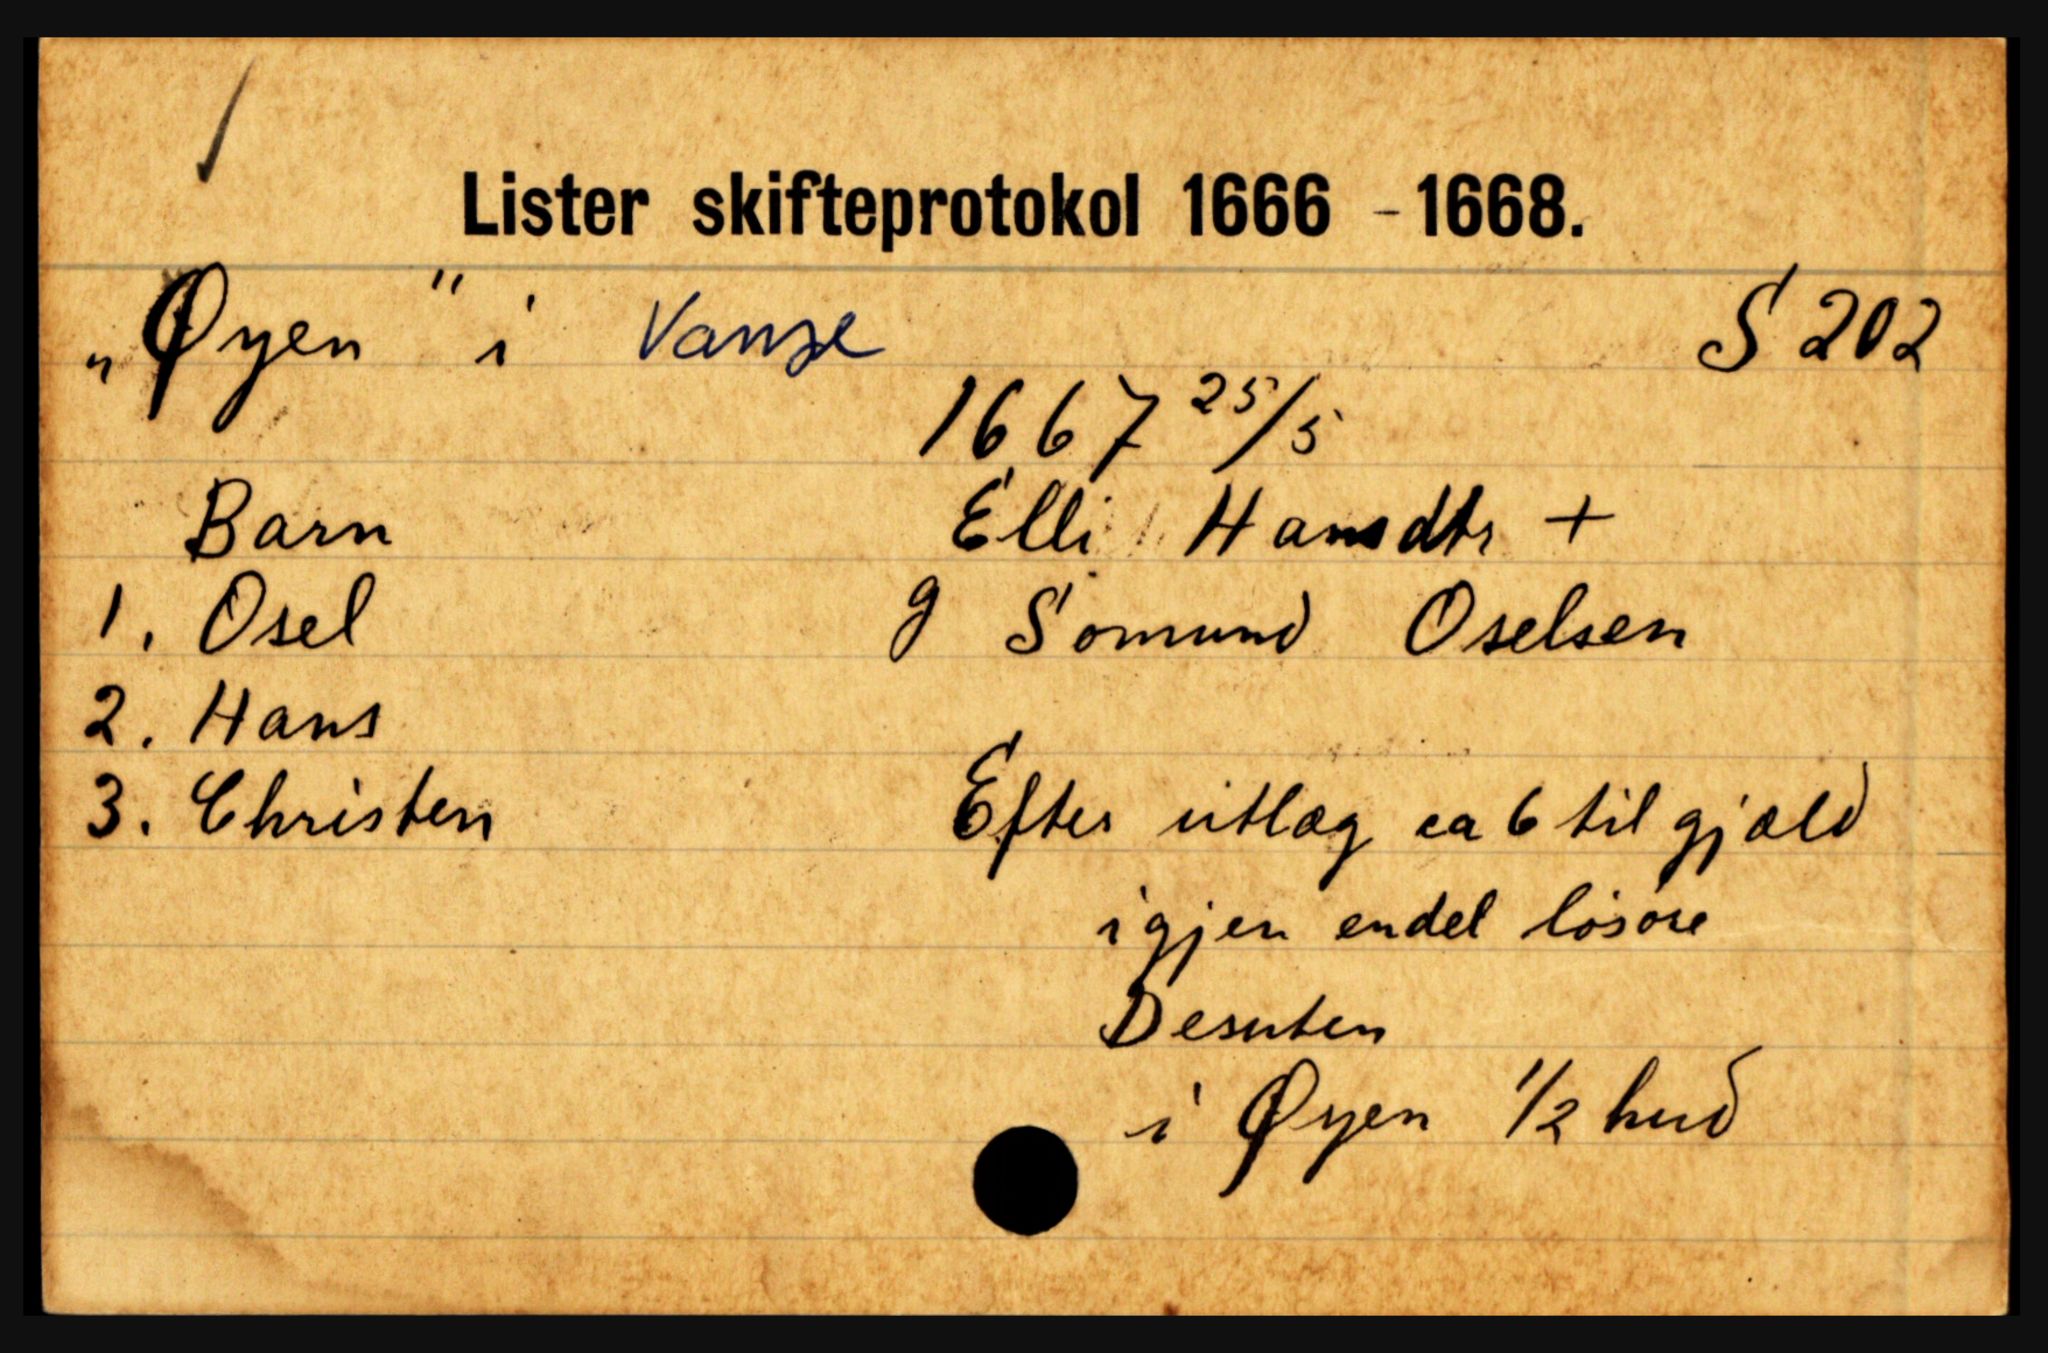 Lister skifteprotokol 1666 - 1668.
„Øyen" i Vanse S 202
1667 25/5
Barn Elli Hansdtr +
1. Osel g Somund Oselsen
2. Hans
3. Christen Efter utlæg ca 6 til gjæld
igjen endel løsøre
Desuten
i Øyen 1/2 hud